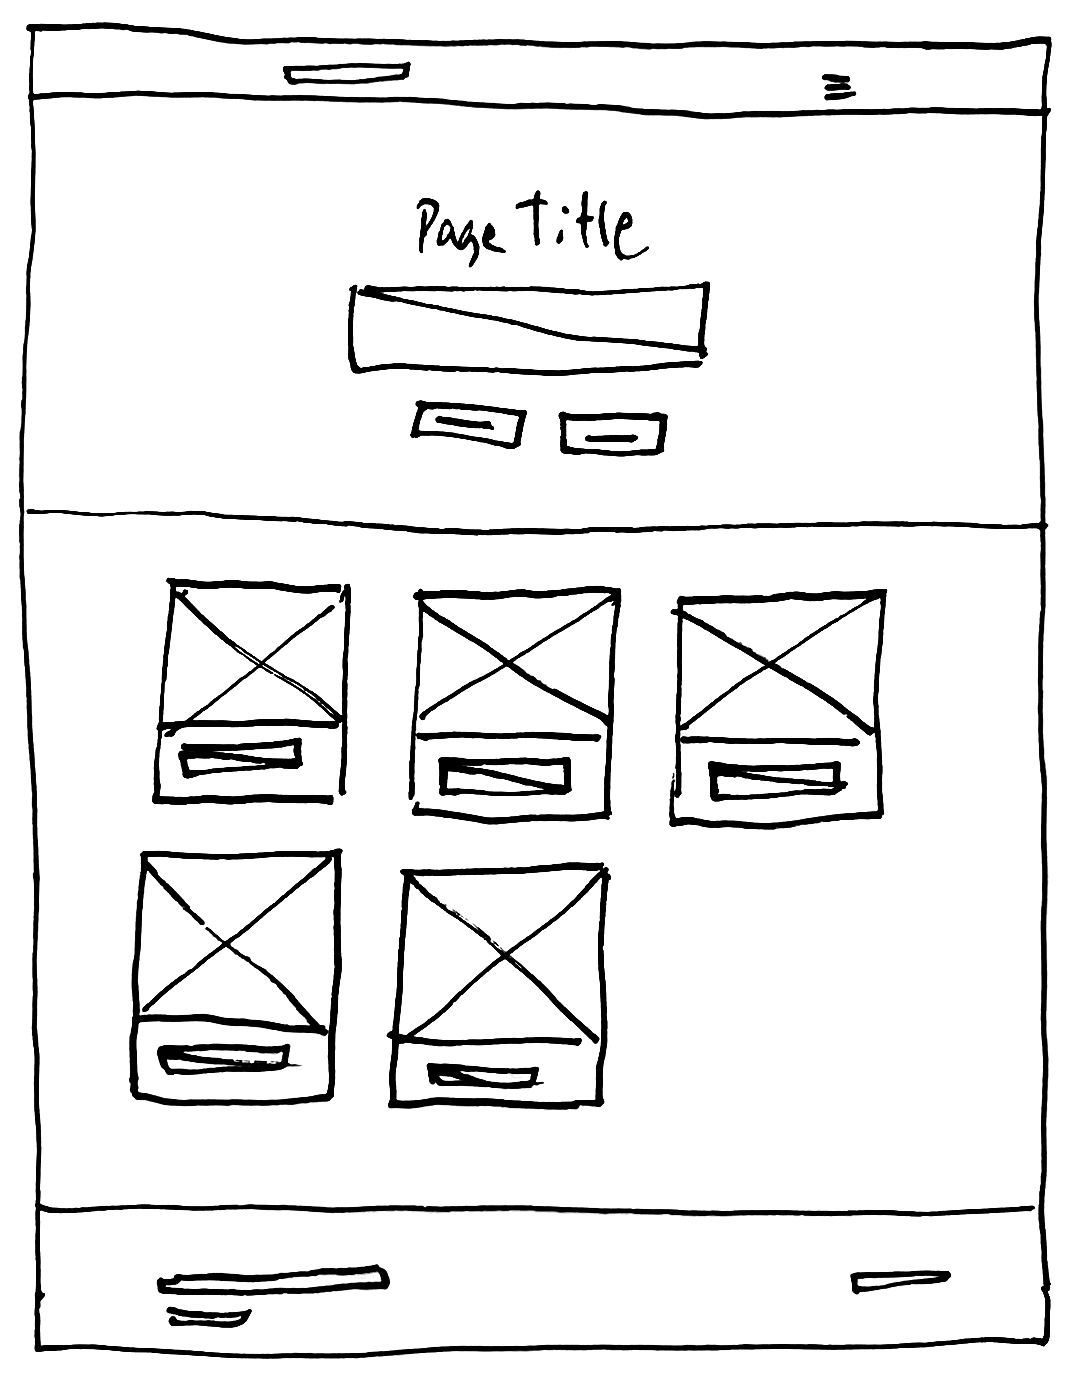 Page Title